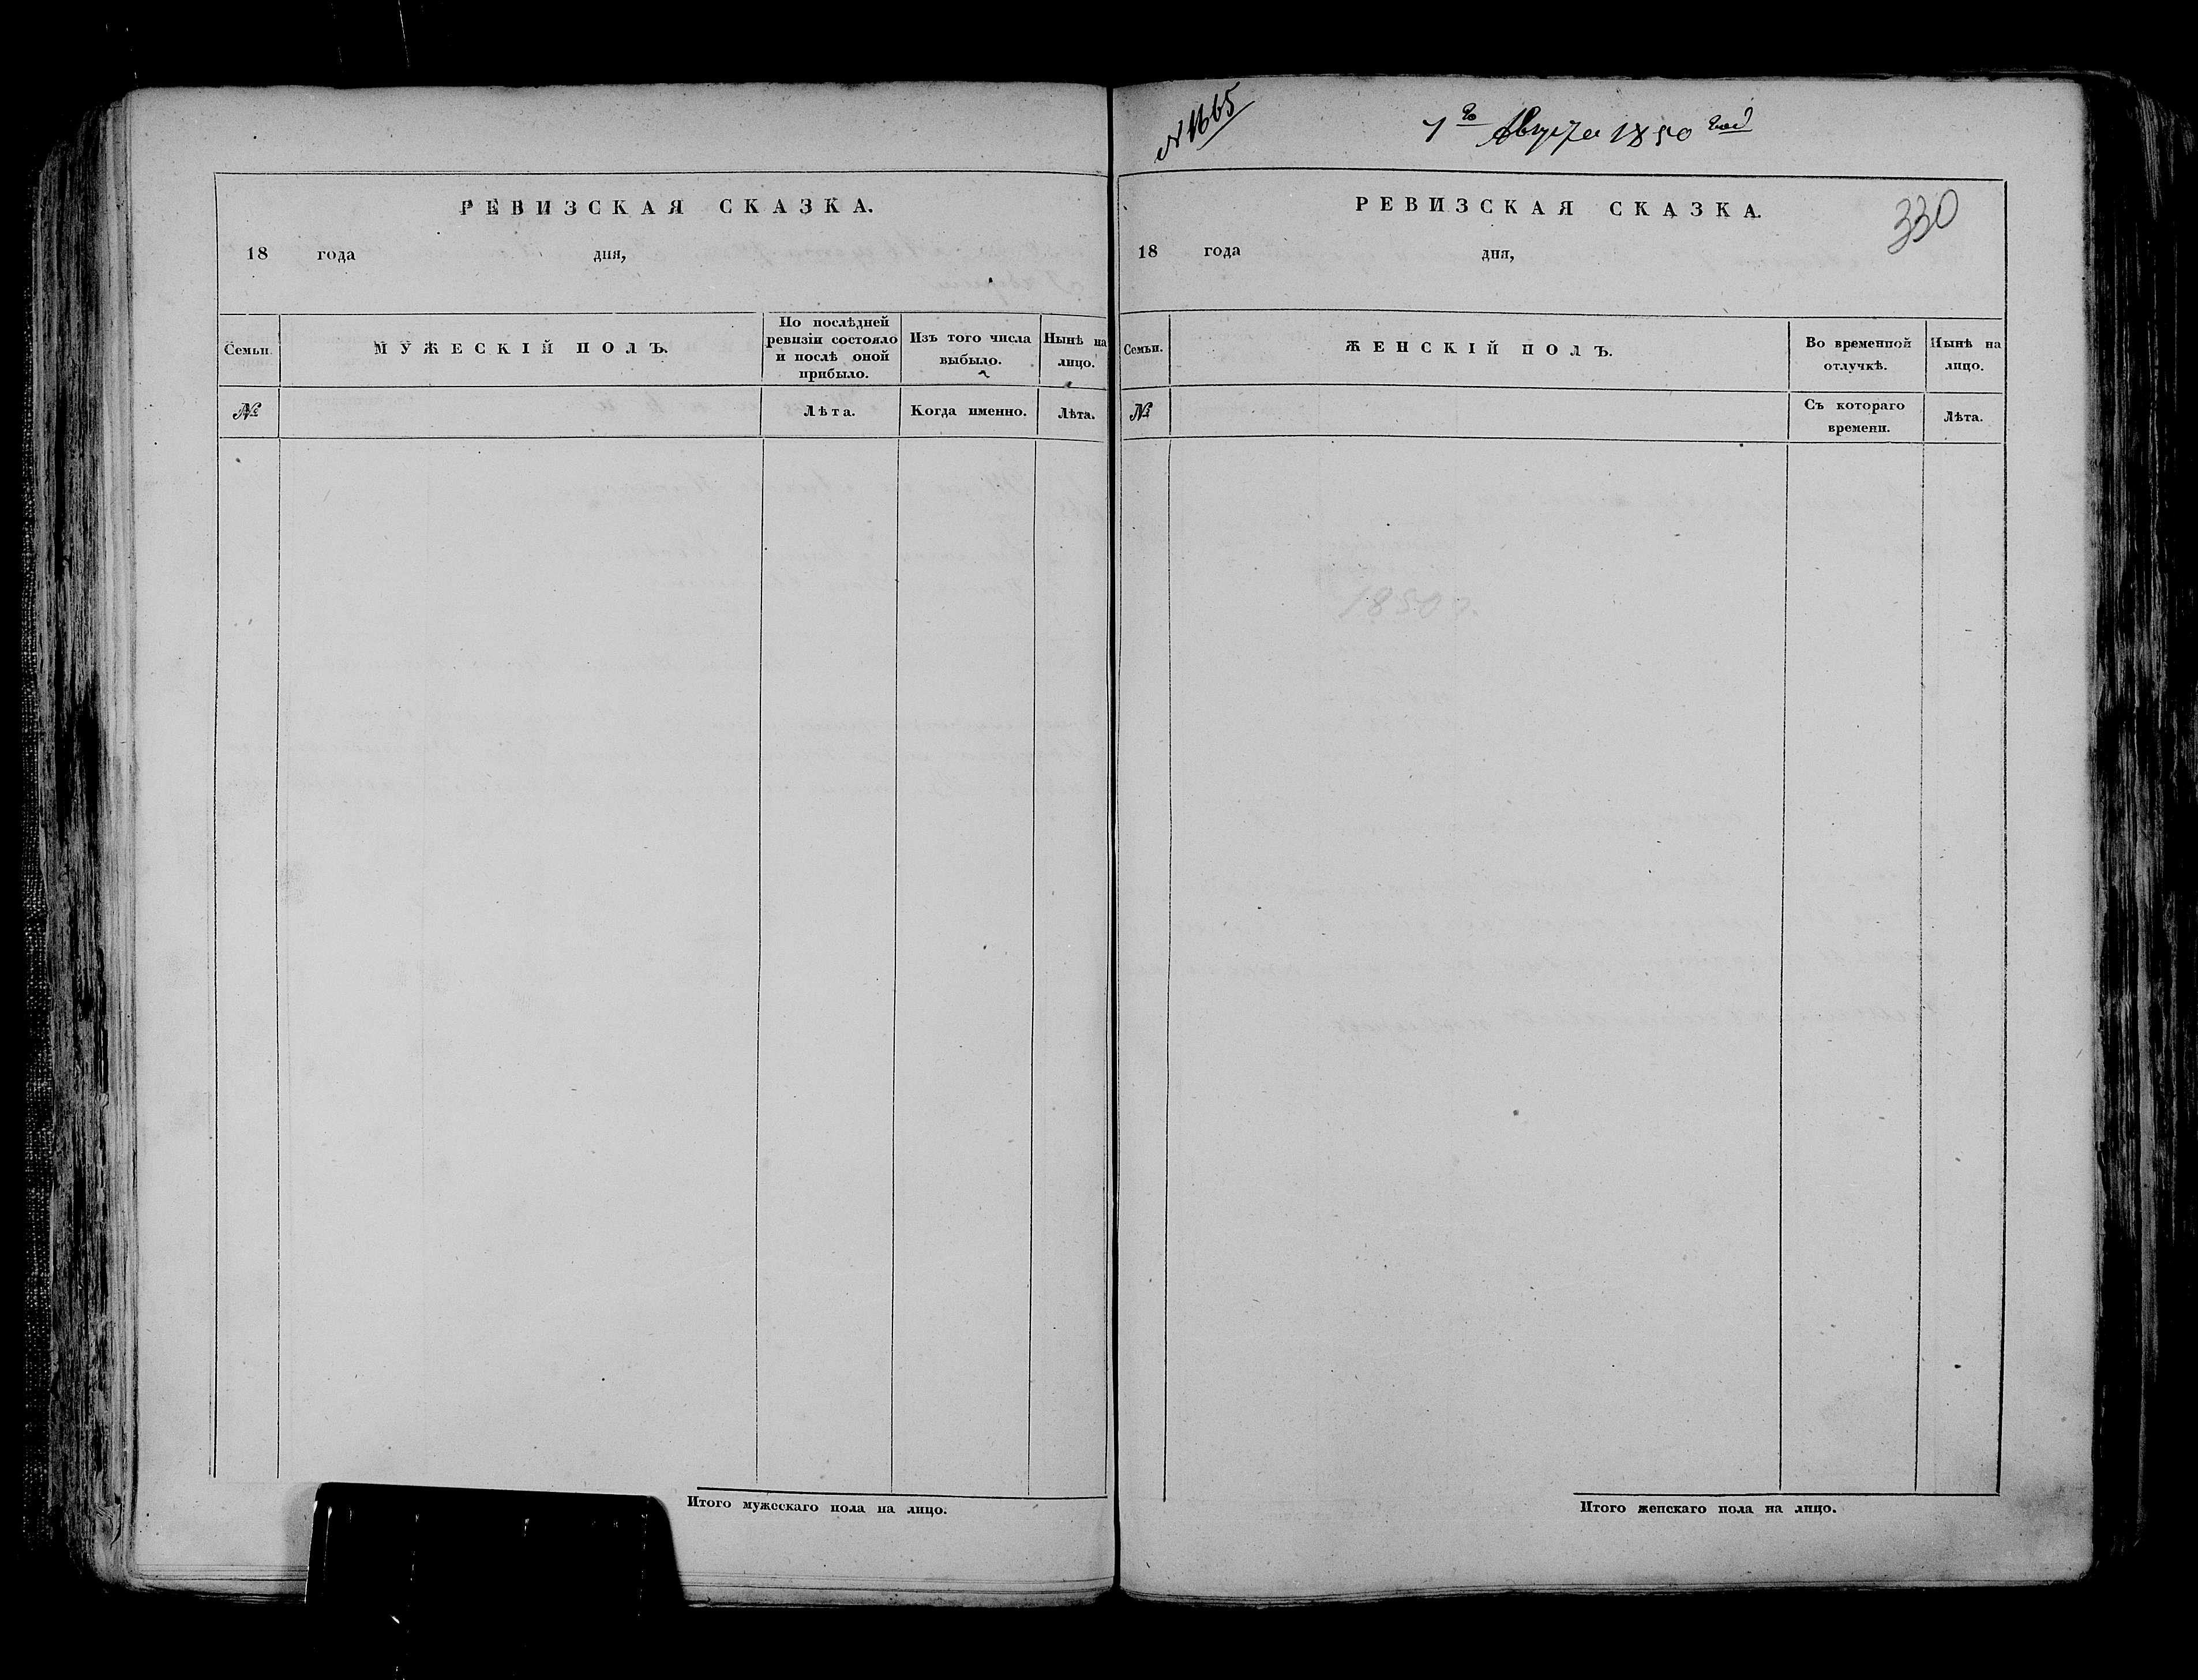 РЕВИЗСКАЯ СКАЗКА.
18 года дня,
Семьи.
МУЖЕСКІЙ ПОЛЪ.
По послѣдней
ревизіи состояло
и послѣ оной
прибыло.
Изъ того числа
выбыло.
Нынѣ на
лицо.
№
Лѣта.
Когда именно.
Лѣта.
Итого мужескаго пола на лицо.
№ 1665
1го Августа 1850 года
330
РЕВИЗСКАЯ СКАЗКА.
18 года дня,
Семьи.
ЖЕНСКІЙ ПОЛЪ.
Во временной
отлучкѣ.
Нынѣ на
лицо.
№
Съ котораго
времени.
Лѣта.
1850 г.
Итого женскаго пола на лицо.